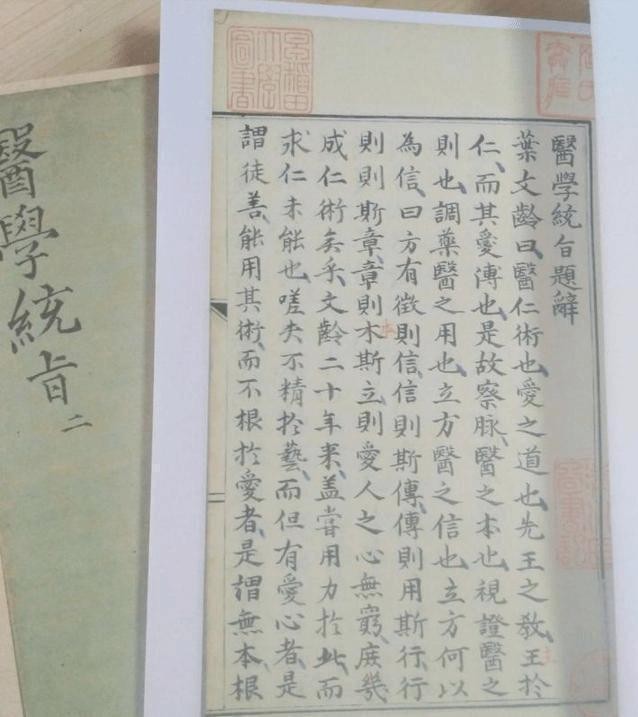 早稻田大學圖書
醫學統㫖題辭
葉文齡曰醫仁術也愛之道也先王之教王於
主
仁而其愛溥也是故察脉醫之本也視證醫之
則也調藥醫之用也立方醫之信也立方何以
為信曰方有徵則信信則斯傳傳則用斯行行
則則斯章章則木斯立則愛人之心無窮庻幾
本
成仁術矣乎文齡二十年来盖甞用力於此而
求仁未能也嗟夫不精於藝而但有愛心者是
謂徒善能用其術而不根於愛者是謂無本根
醫學統㫖 二